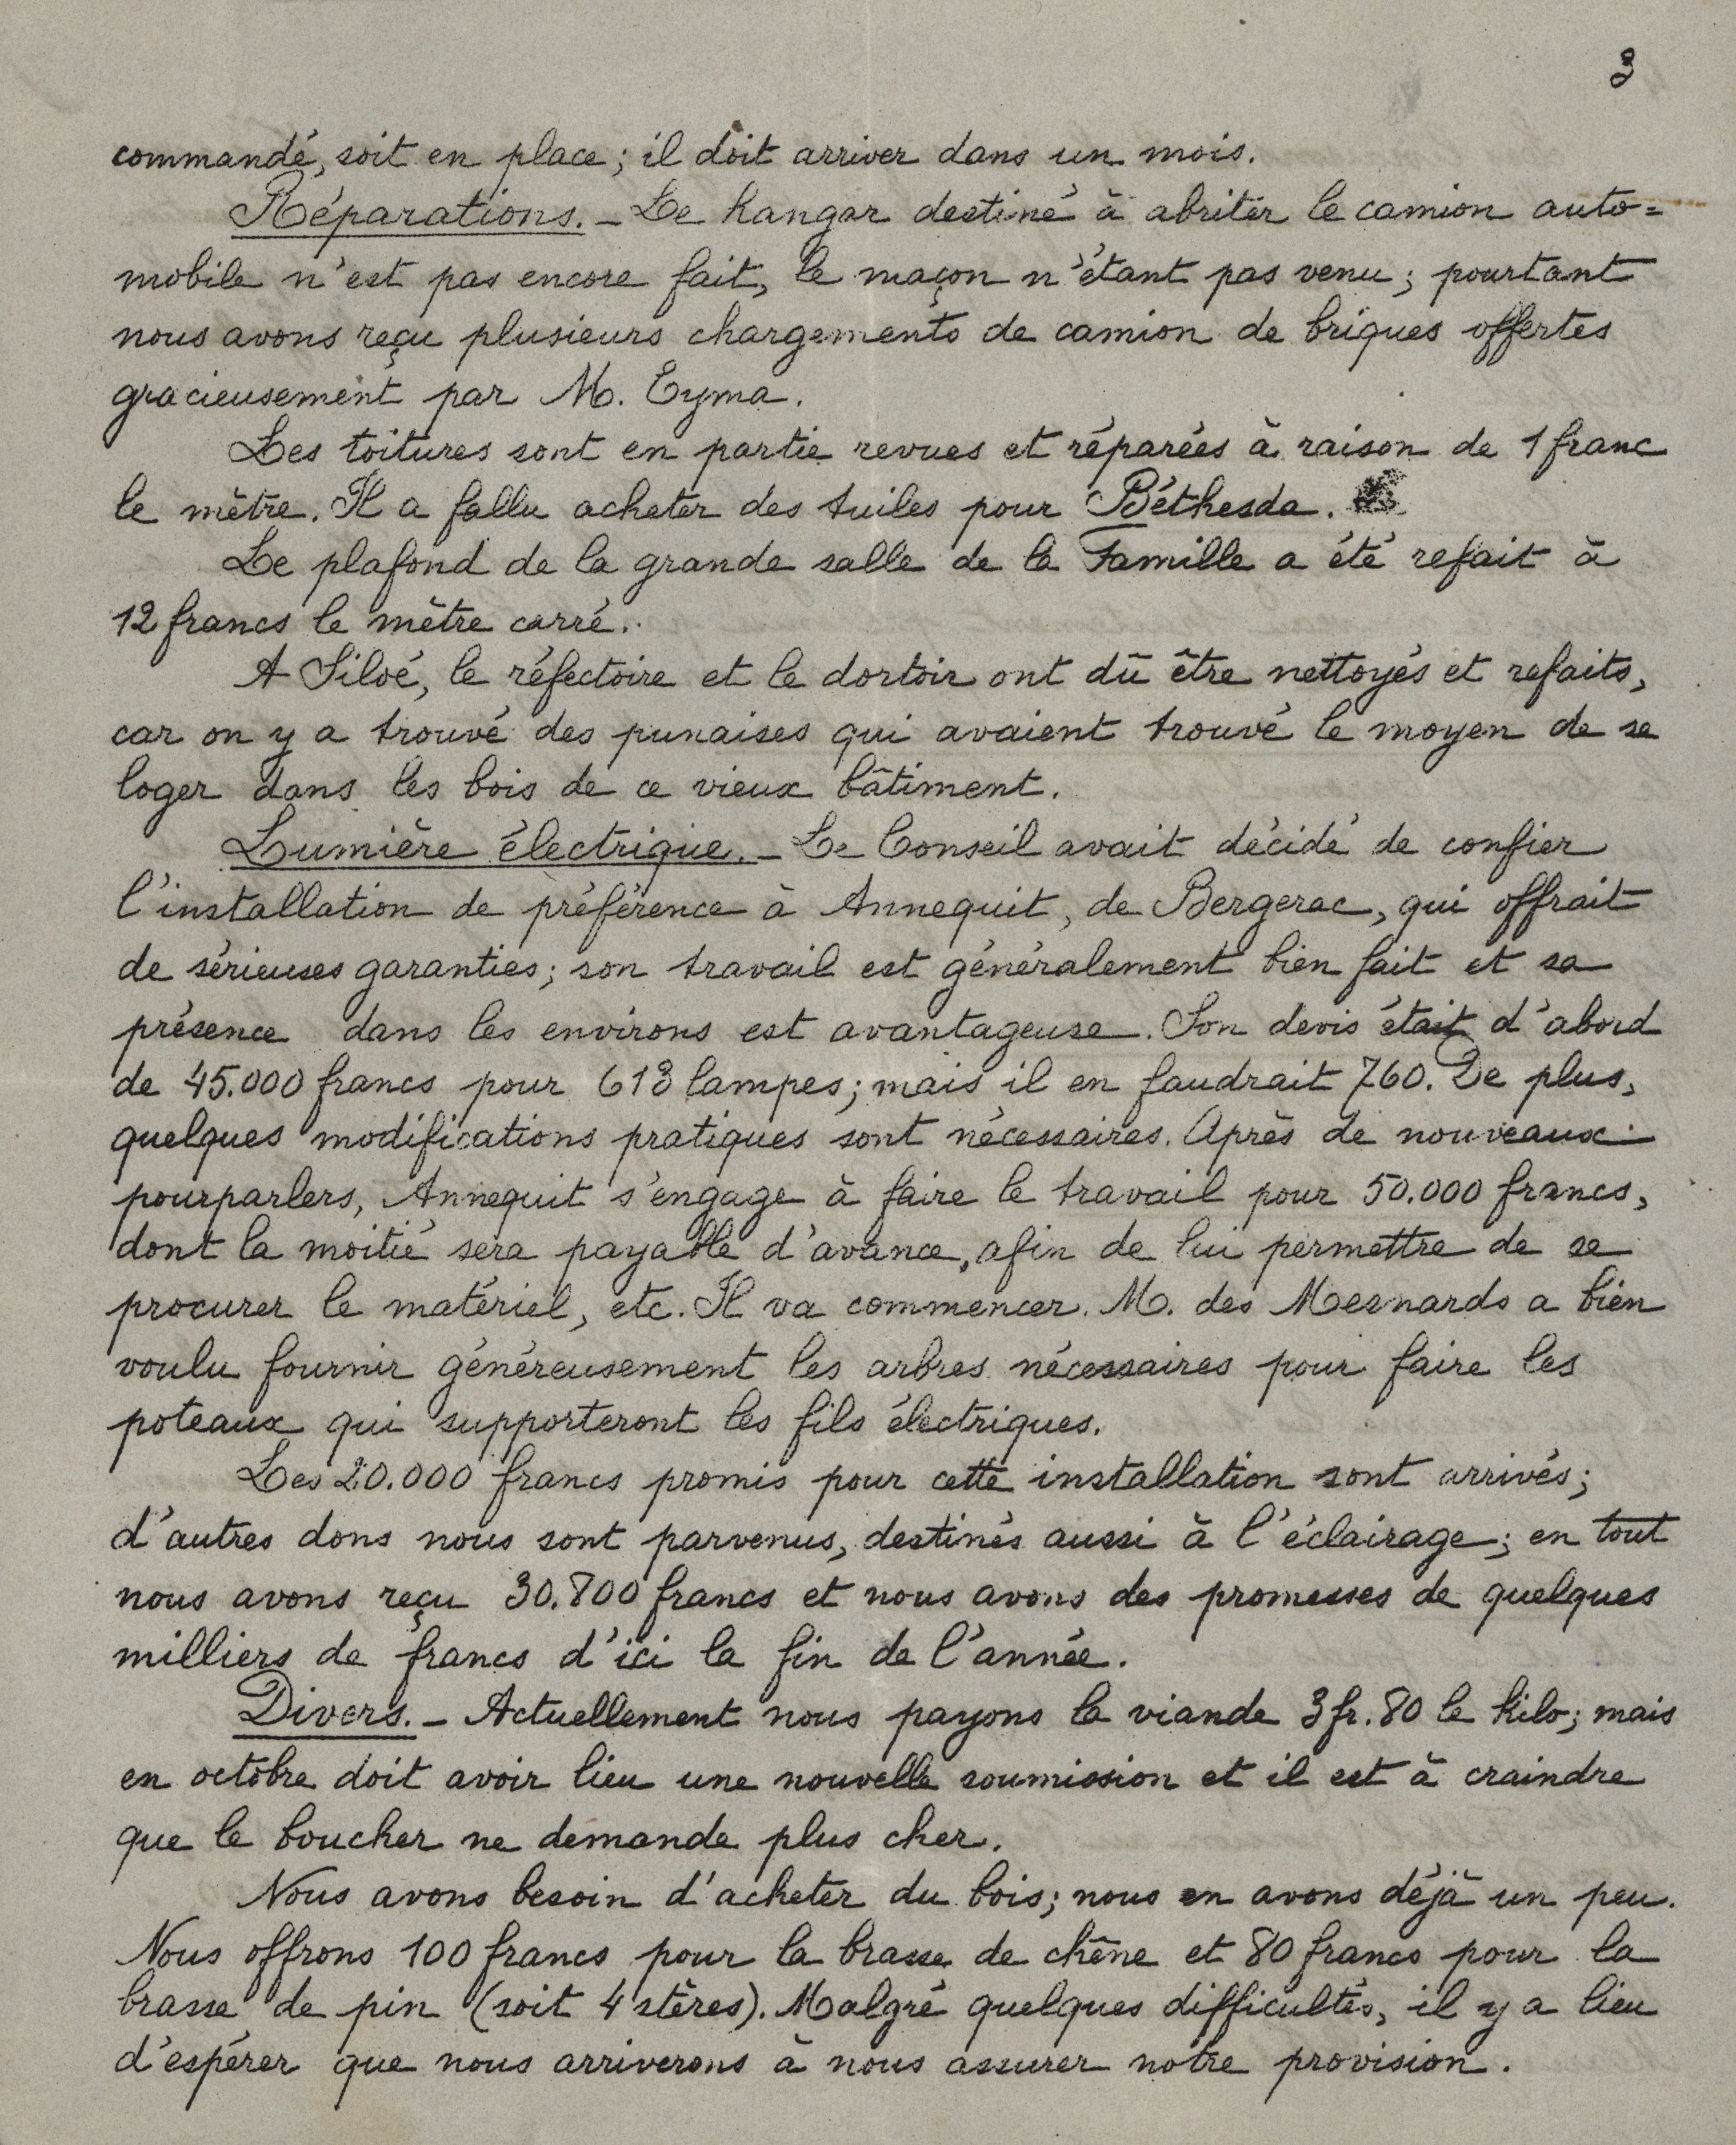 3
commandé, soit en place ; il doit arriver dans un mois.
Réparations. - Le hangar destiné à abriter le camion auto=
mobile n'est pas encore fait, le maçon n'étant pas venu ; pourtant
nous avons reçu plusieurs chargements de camion de briques offertes
gracieusement par M. Eyma.
Les toitures sont en partie revues et réparées à raison de 1 franc
le mètre. Il a fallu acheter des tuiles pour Béthesda.
Le plafond de la grande salle de la Famille a été refait à
12 francs le mètre carré.
A Siloé, le réfectoire et le dortoir ont dû être nettoyés et refaits,
car on y a trouvé des punaises qui avaient trouvé le moyen de se
loger dans les bois de ce vieux bâtiment.
Lumière électrique. - Le Conseil avait décidé de confier
l'installation de préférence à Annequit, de Bergerac, qui offrait
de sérieuses garanties ; son travail est généralement bien fait et sa
présence dans les environs est avantageuse. Son devis était d'abord
de 45.000 francs pour 613 lampes ; mais il en faudrait 760. De plus,
quelques modifications pratiques sont nécessaires. Après de nouveaux
pourparlers, Annequit s'engage à faire le travail pour 50.000 francs,
dont la moitié sera payable d'avance, afin de lui permettre de se
procurer le matériel, etc. Il va commencer. M. des Mesnards a bien
voulu fournir généreusement les arbres nécessaires pour faire les
poteaux qui supporteront les fils électriques.
Les 20.000 francs promis pour cette installation sont arrivés ;
d'autres dons nous sont parvenus, destinés aussi à l'éclairage ; en tout
nous avons reçu 30.800 francs et nous avons des promesses de quelques
milliers de francs d'ici la fin de l'année.
Divers. - Actuellement nous payons la viande 3 fr. 80 le kilo ; mais
en octobre doit avoir lieu une nouvelle soumission et il est à craindre
que le boucher ne demande plus cher.
Nous avons besoin d'acheter du bois ; nous en avons déjà un peu.
Nous offrons 100 francs pour la brasse de chêne et 80 francs pour la
brasse de pin (soit 4 stères). Malgré quelques difficultés, il y a lieu
d'espérer que nous arriverons à nous assurer notre provision.